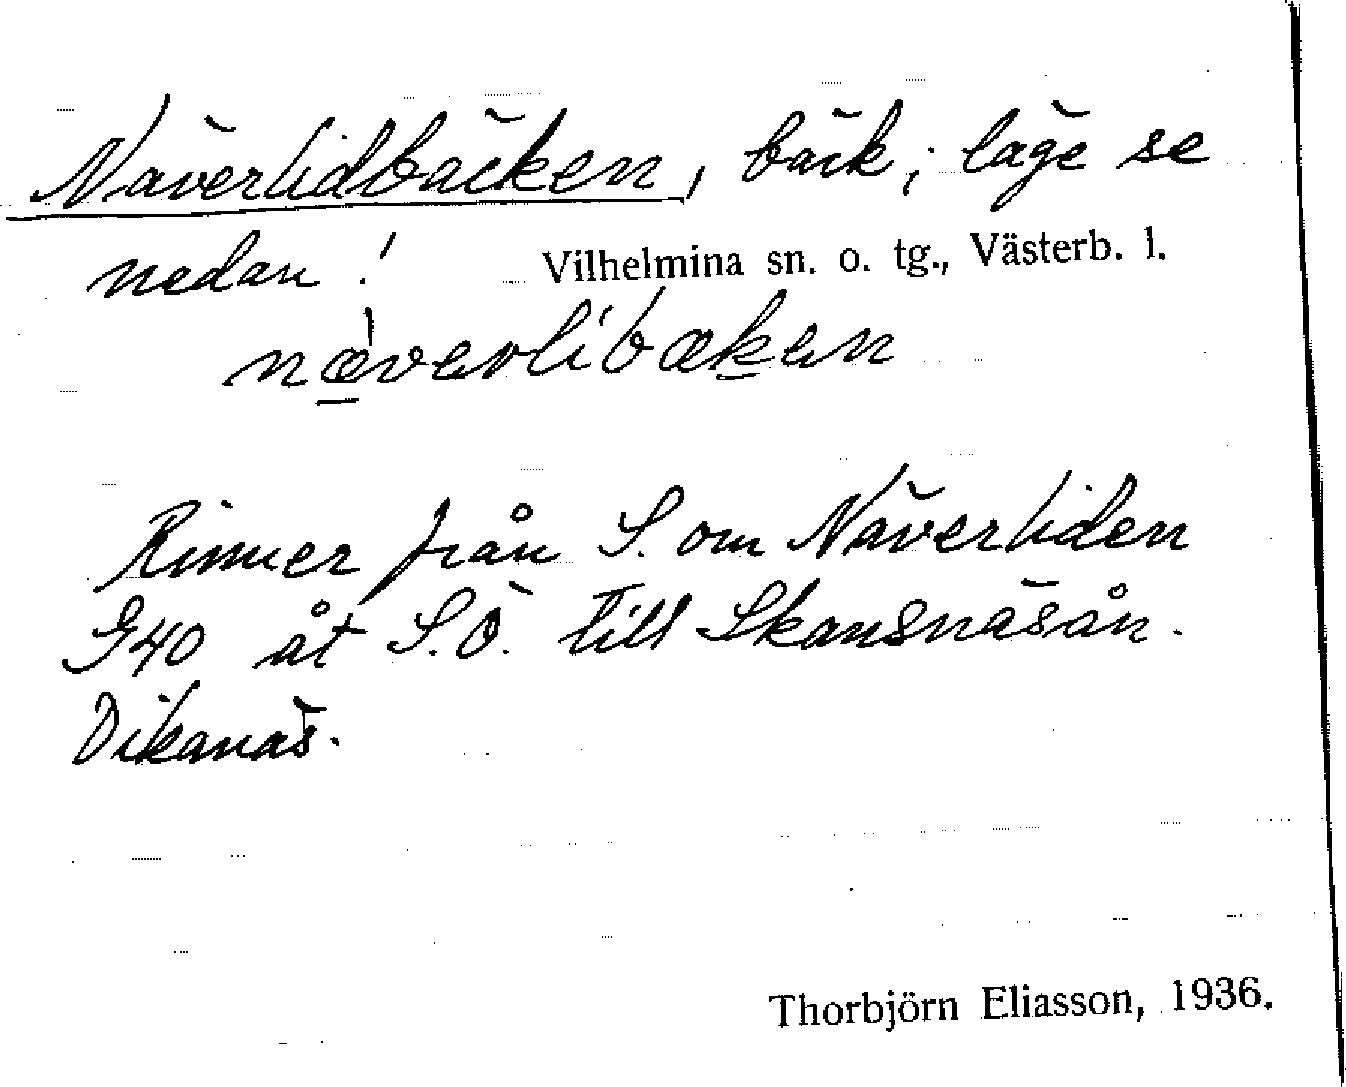 Näverlidbäcken, bäck; läge se
nedan! Vilhelmina sn. o. tg., Västerb. l.
næverlibæken
Rinner från S. om Näverliden
G40 åt S.Ö. till Skansnäsån.
Dikanäs.
Thorbjörn Eliasson, 1936.